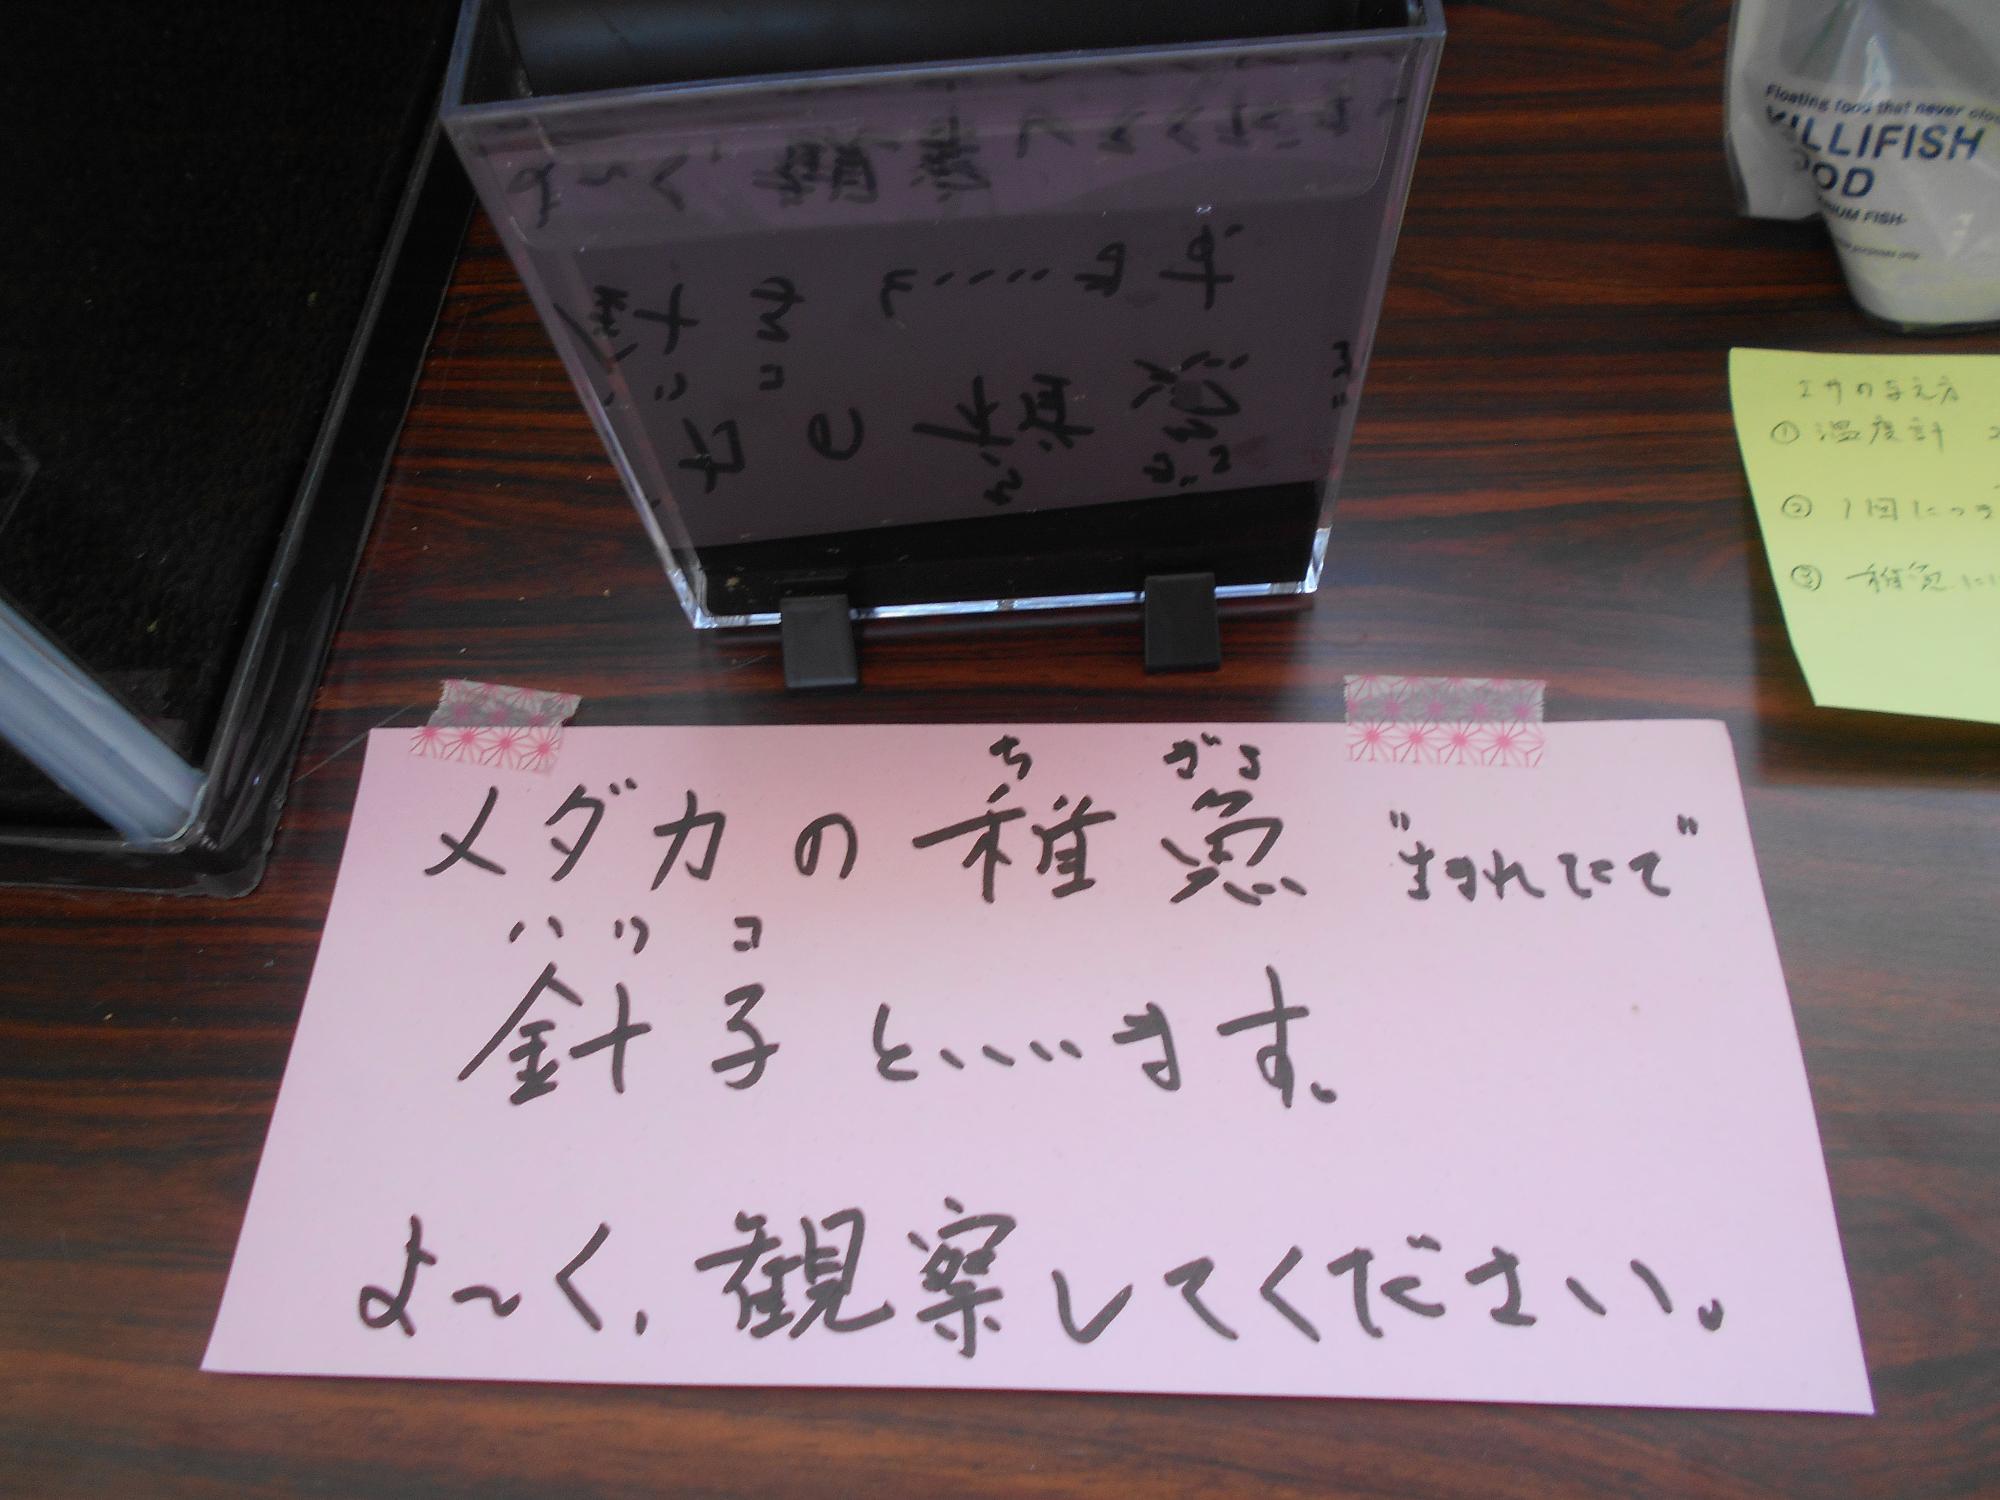 Floating food that never
KILLIFISH
FOOD
エサの与え方
① 温度計
② 1回につき
③ 稚魚に
ち ぎょ
メダカの稚魚 "生まれたて"
ハリコ
針子といいます。
よ〜く、観察してください。